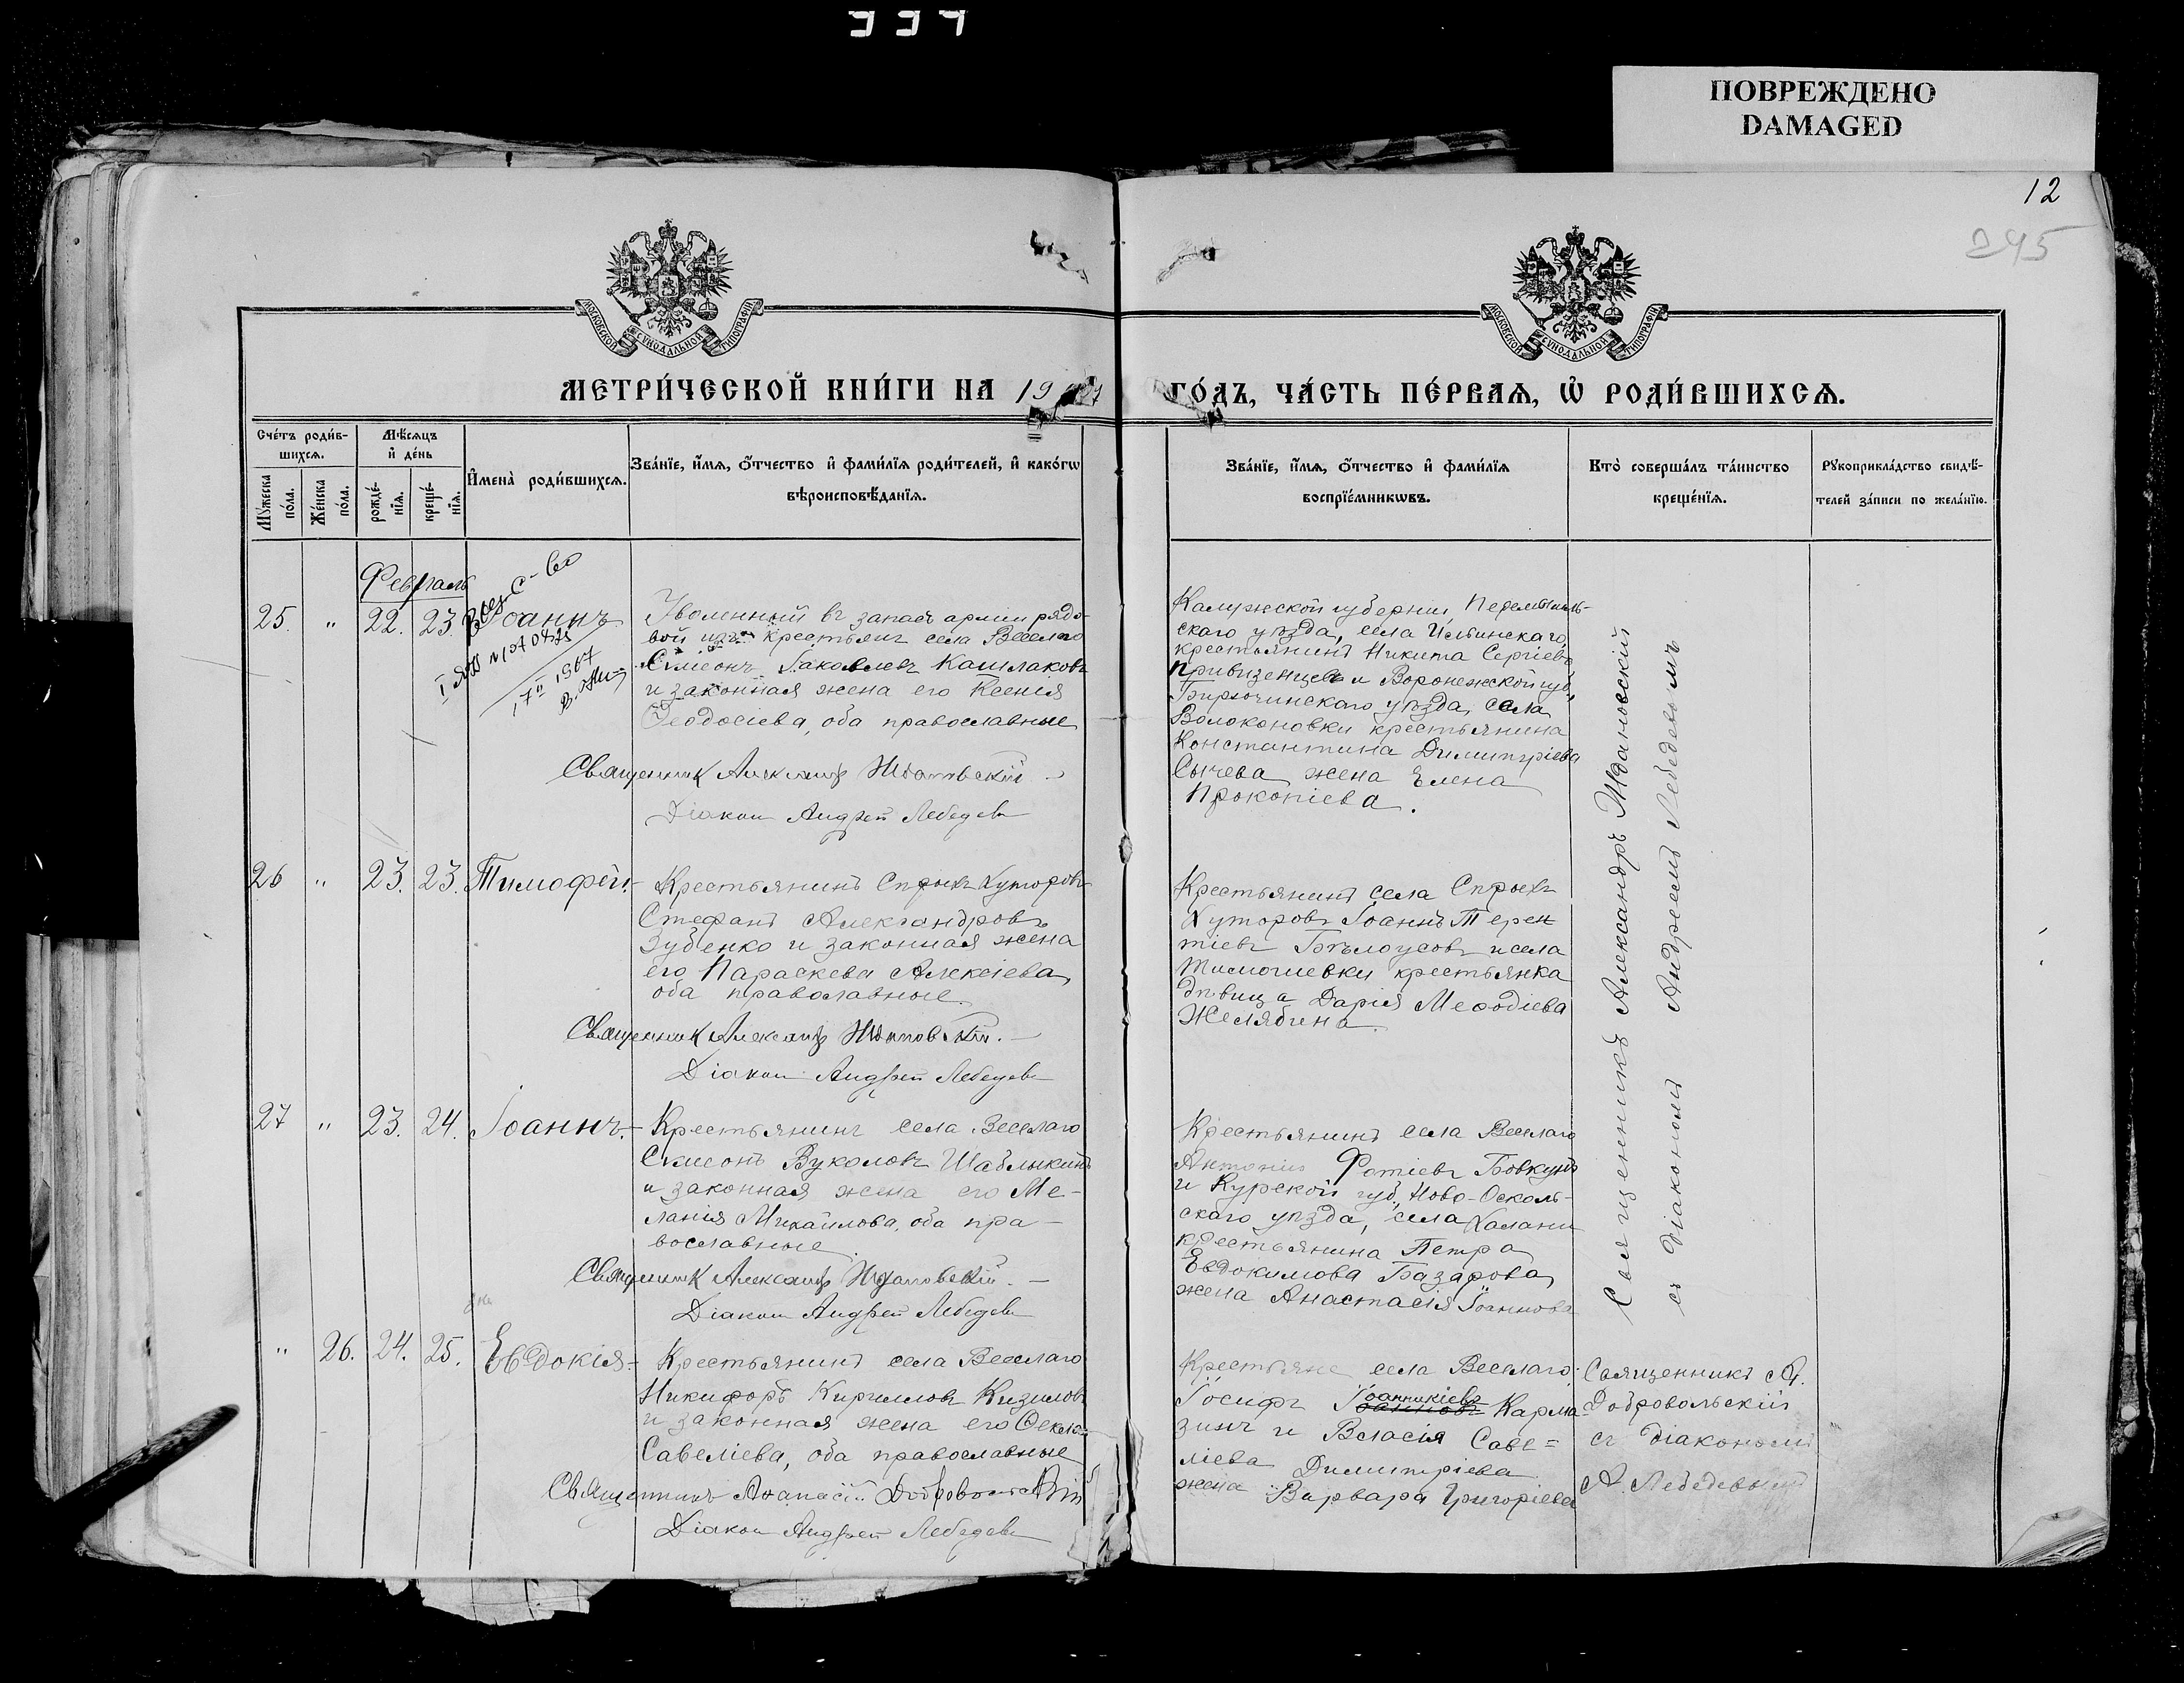 337
ПОВРЕЖДЕНО
DAMAGED
12
245
МОСКОВСКОЙ СѴНОДАЛЬНОЙ ТИПОГРАФІИ
МОСКОВСКОЙ СѴНОДАЛЬНОЙ ТИПОГРАФІИ
МЕТРИ́ЧЕСКОЙ КНИ́ГИ НА 19
ГО́ДЪ, ЧА́СТЬ ПЕ́РВАѦ, Ѡ҆ РОДИ́ВШИХСѦ.
Сче́тъ роди́в-
шихсѧ.
Мѣ́сѧцъ
и҆ де́нь
Мꙋ́жеска
по́ла.
Же́нска
по́ла.
рожде́-
нїѧ.
креще́-
нїѧ.
И҆мена̀ роди́вшихсѧ.
Зва́нїе, и҆́мѧ, ѻ҆́тчество и҆ фами́лїѧ роди́телей, и҆ како́гѡ
вѣроисповѣ́данїѧ.
Зва́нїе, и҆́мѧ, ѻ҆́тчество и҆ фами́лїѧ
воспрїе́мникѡвъ.
Кто̀ соверша́лъ та́инство
креще́нїѧ.
Рꙋкоприкла́дство свидѣ́-
телей за́писи по жела́нїю.
Февраль
25. " 22. 23. Іоаннъ
Уволенный въ запасъ арміи рядо-
вой изъ крестьянъ села Веселаго
Симеонъ Іаковлевъ Кашлаковъ
и законная жена его Ксенія
Ѳеодосіева, оба православные
Священник Александр Ждановскій
Діакон Андрей Лебедев
Калужской губерніи, Перемышль-
скаго уѣзда, села Ильинскаго,
крестьянинъ Никита Сергіевъ
Привизенцевъ и Воронежской губ.,
Бирючинскаго уѣзда, села
Волоконовки крестьянина
Константина Димитріева
Сычева жена Елена
Прокопіева.
Священникъ Александръ Ждановскій
съ діакономъ Андреемъ Лебедевымъ
26 " 23. 23. Тимофей.
Крестьянинъ Спрыхъ Хуторовъ
Стефанъ Александровъ
Зубенко и законная жена
его Параскева Алексіева,
оба православные.
Священник Александр Ждановскій.
Діакон Андрей Лебедев
Крестьянинъ села Спрыхъ
Хуторовъ Іоаннъ Терен
тіевъ Бѣлоусовъ и села
Тимошевки крестьянка
дѣвица Дарія Меѳодіева
Желябина
27 " 23. 24. Іоаннъ.
Крестьянинъ села Веселаго
Симеонъ Вуколовъ Шаблыкинъ
и законная жена его Ме-
ланія Михаилова, оба пра-
вославные.
Священник Александр Ждановскій.
Діакон Андрей Лебедев
Крестьянинъ села Веселаго
Антоній Фотіевъ Бовкунъ
и Курской губ., Ново-Осколь-
скаго уѣзда, села Халани
крестьянина Петра
Евдокимова Базарова,
жена Анастасія Іоаннова
" 26. 24. 25. Евдокія.
Крестьянинъ села Веселаго
Никифоръ Кирилловъ Кизиловъ
и законная жена его Ѳекла
Савеліева, оба православные
Священникъ Аѳанасій Добровольскій
Діакон Андрей Лебедев
Крестьяне села Веселаго:
Іосифъ Іоанникіевъ Карма
зинъ и Власія Саве=
ліева Димитріева
жена Варвара Григоріева
Священникъ А.
Добровольскій
съ діакономъ
А. Лебедевымъ